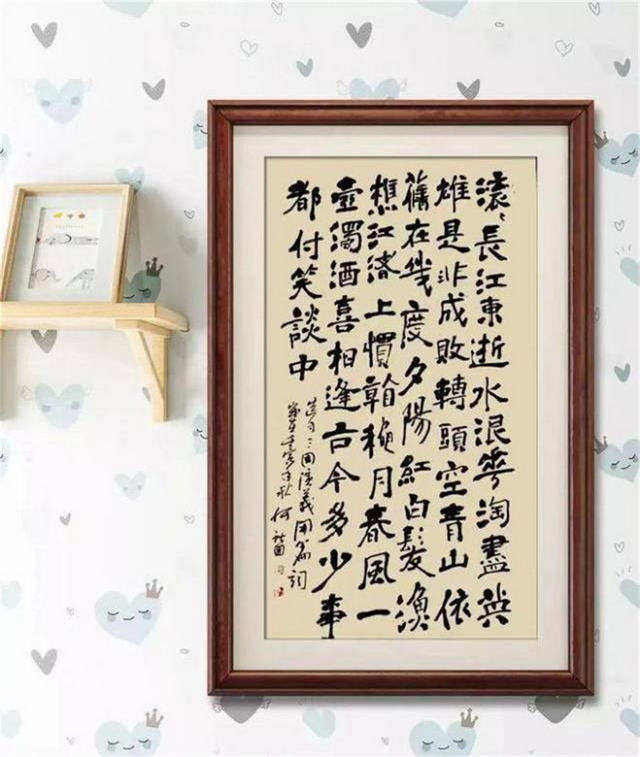 滚〻長江東逝水浪花淘盡英
雄是非成敗轉頭空青山依
舊在幾度夕陽紅白髮漁
樵江渚上慣看秋月春風一
壺濁酒喜相逢古今多少事
都付笑談中
三国演義開篇詞
秋何